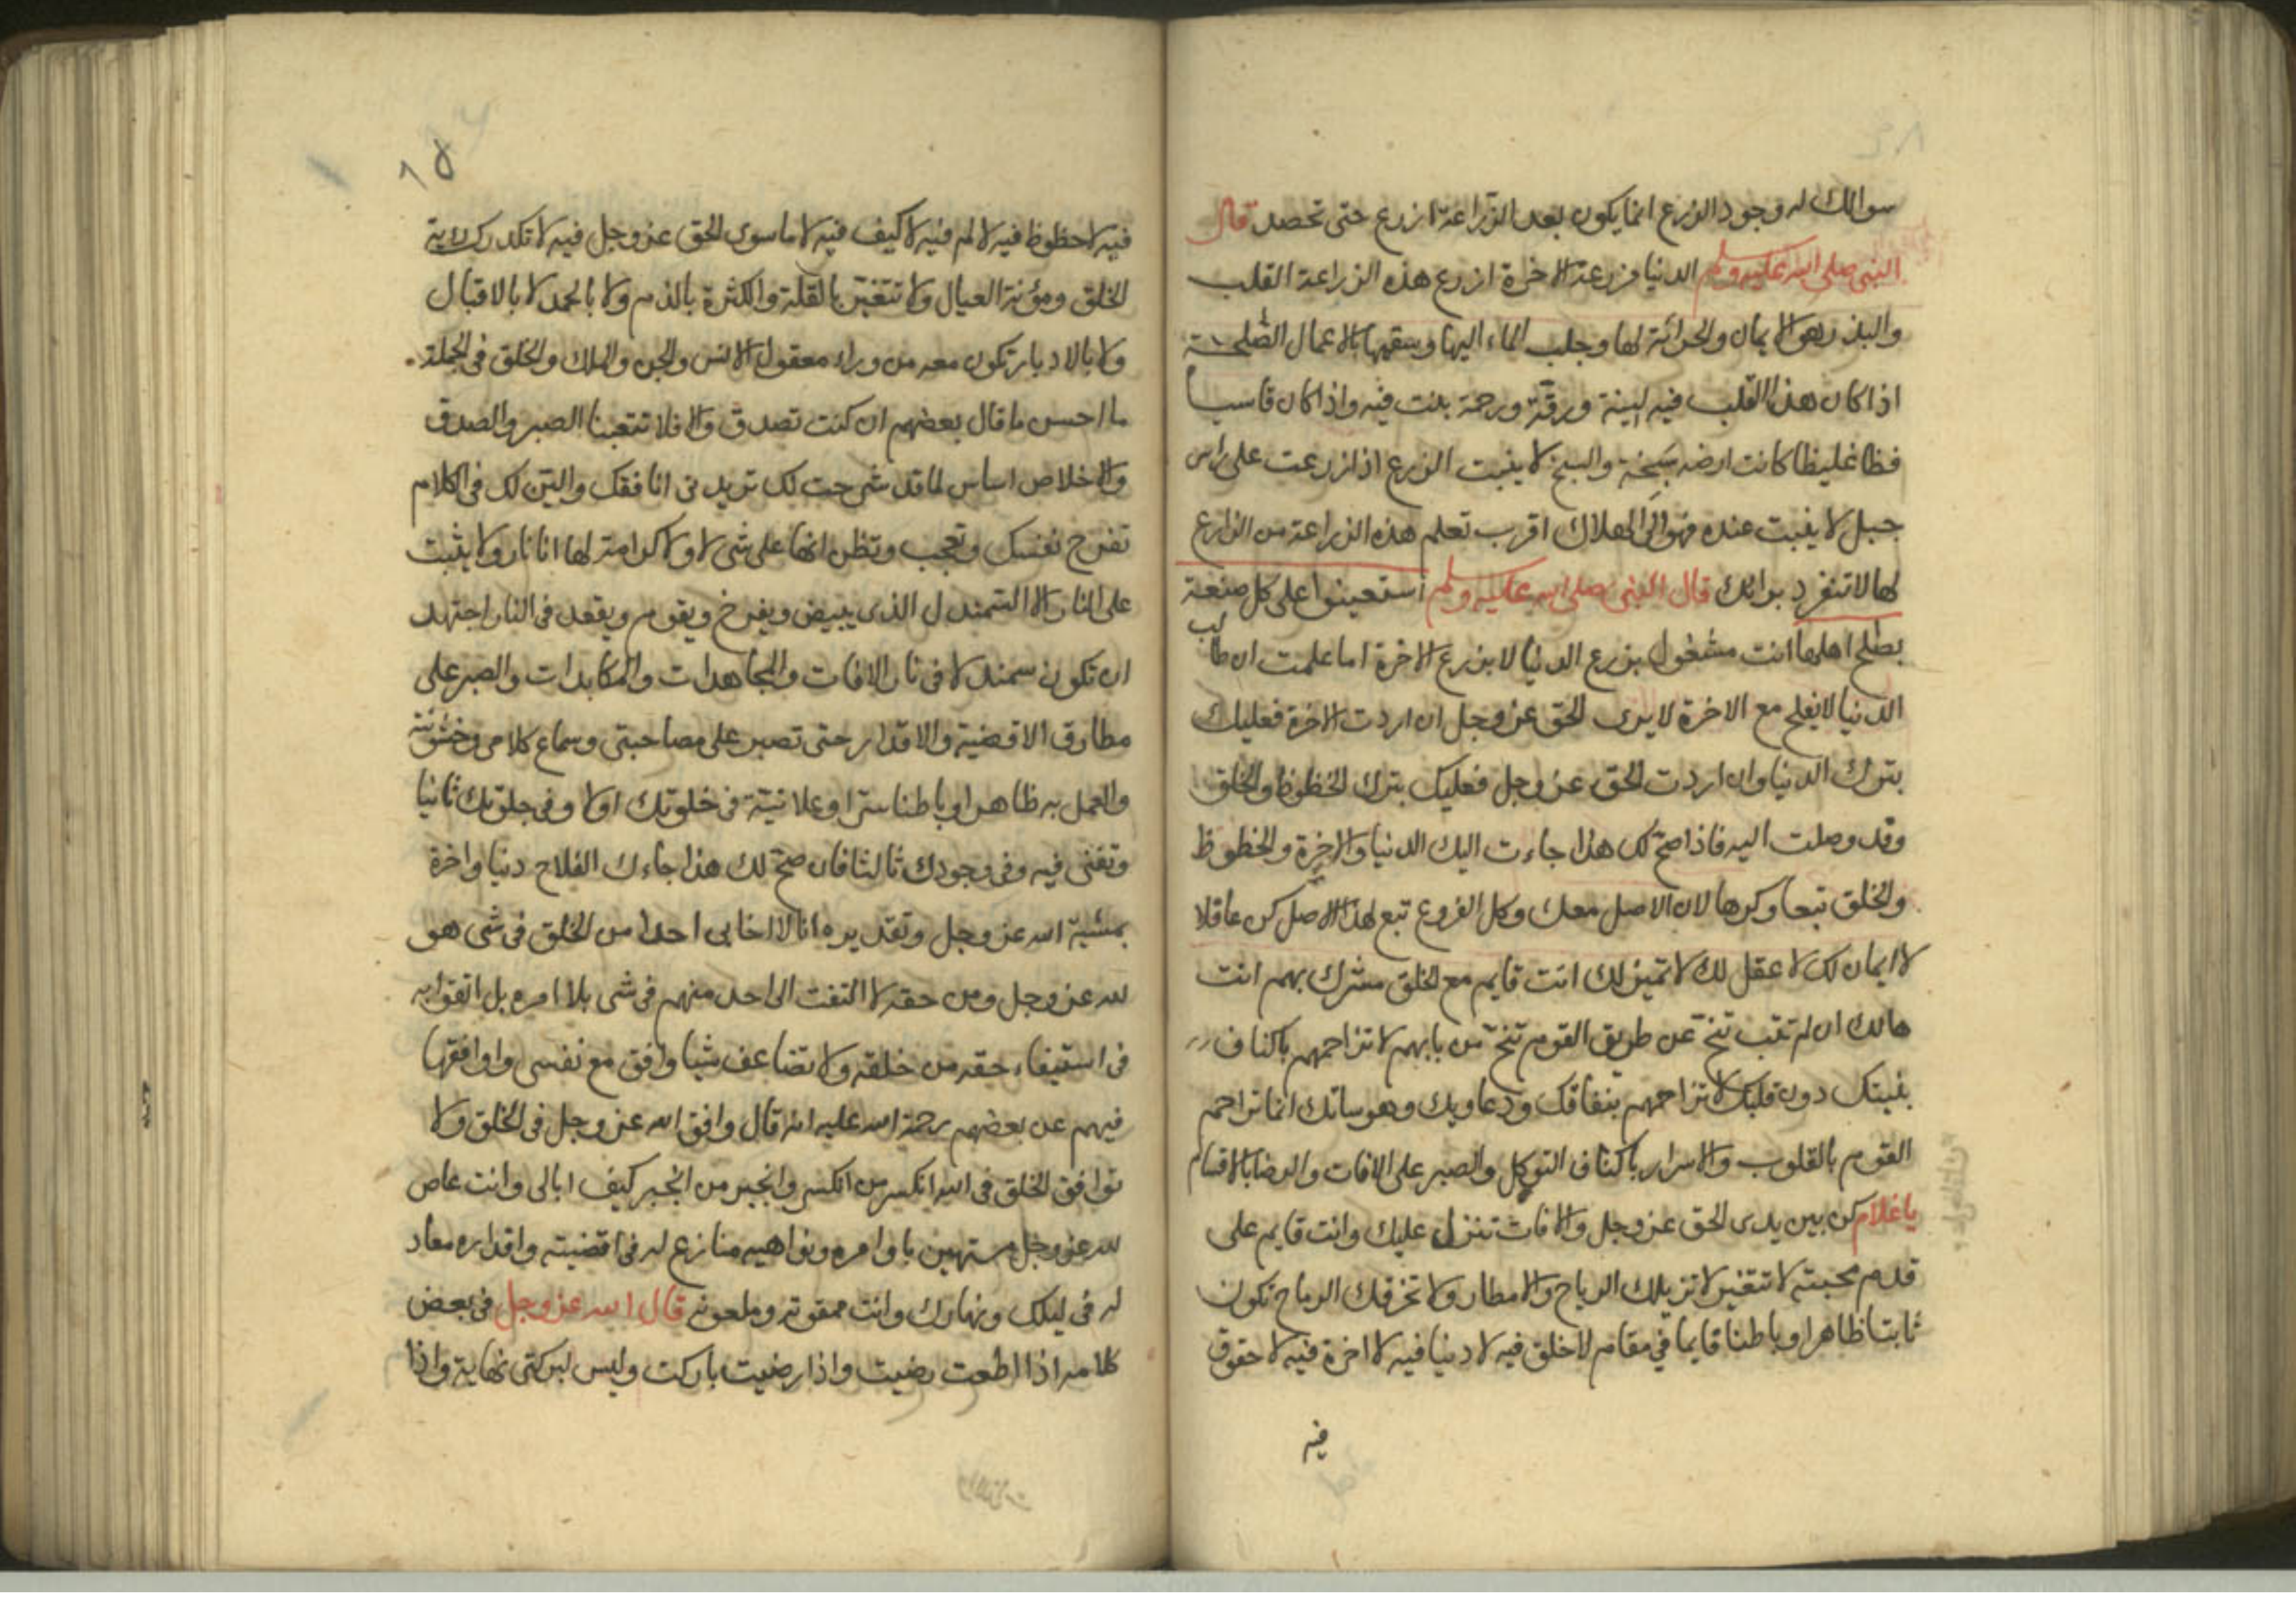 سوالك له وجود الزرع انما يكون بعد الزراعة ازرع حتى تحصد قال
النبي صلى الله عليه وسلم الدنيا مزرعة الاخرة ازرع هذه الزراعة القلب
والبذر هو الايمان والحراثة لها وجلب الماء اليها وسقيها بالاعمال الصلحة
اذا كان هذا القلب فيه لينة ورقة ورحمة بنت فيه واذا كان قاسيا
فظا غليظا كانت ارضه سبخة والسبخ لا ينبت الزرع اذا زرعت على راس
جبل لا ينبت عنده فهو الى الهلاك اقرب تعلم هذه الزراعة من الزارع
لها لا تنفرد برايك قال النبي صلى الله عليه وسلم استعينوا على كل صنعة
بصلح اهلها انت مشغول بزرع الدنيا لا بزرع الاخرة اما علمت ان طالب
الدنيا لا يفلح مع الاخرة لا يرى الحق عز وجل ان اردت الاخرة فعليك
بترك الدنيا وان اردت الحق عز وجل فعليك بترك الحظوظ والخلق
وقد وصلت اليه فاذا صح لك هذا جاءت اليك الدنيا والاخرة والحظوظ
والخلق تبعا وكرها لان الاصل معك وكل الفروع تبع لهذا الاصل كن عاقلا
لا ايمان لك لا عقل لك لا تميز لك انت قايم مع الخلق مشرك بهم انت
هالك ان لم تتب تنح عن طريق القوم تنح من بابهم لا تزاحمهم باكتاف
بنيتك دون قلبك لا تزاحمهم بنفاقك ودعاويك وهوساتك انما تراحم
القوم بالقلوب والاسرار باكتاف التوكل والصبر على الافات والرضا بالاقسام
يا غلام كن بين يدى الحق عز وجل والافات تنزل عليك وانت قايم على
قدم محبته لا تتغير لا تزيلك الرياح والامطار ولا تخرقك الرماح تكون
ثابتا ظاهرا وباطنا قايما في مقام لا خلق فيه لا دنيا فيه لا اخرة فيه لا حقوق
فيه
١٥
فيه لا حظوظ فيه لا لم فيه لا كيف فيه لا ما سوى الحق عز وجل فيه لا تكدرك رؤية
الخلق ومؤنة العيال ولا تتغير بالقلة والكثرة بالذم ولا بالحمد لا بالاقبال
ولا بالادبار تكون معه من وراء معقول الانس والجن والملك والخلق في الجملة
ما احسن ما قال بعضهم ان كنت تصدق والا فلا تتعبنا الصبر والصدق
والاخلاص اساس لما قد شرحت لك تريد نى انافقك والين لك في الكلام
تفرح نفسك وتعجب وتظن انها على شى لا ولا كرامة لها انا نار ولا يثبت
على النار الا السمندل الذى يبيض ويفرخ ويقوم ويقعد في النار اجتهد
ان تكون سمندلا في نار الافات والمجاهدات والمكابدات والصبر على
مطارق الاقضية والاقدار حتى تصبر على مصاحبتى وسماع كلامى وخشونته
والعمل به ظاهرا وباطنا سرا وعلانية في خلوتك اولا وفي جلوتك ثانيا
وتفنى فيه وفي وجودك ثالثا فان صح لك هذا جاءك الفلاح دنيا واخرة
بمشية الله عز وجل وتقديره انا لا احابي احدا من الخلق في شى هو
لله عز وجل ومن حقه لا التفت الى احد منهم في شى بلا امره بل اتقوا به
في استيفاء حقه من خلقه ولا تضاعف شيا وافق مع نفسى واوافقها
فيهم عن بعضهم رحمة الله عليه انه قال وافق الله عز وجل في الخلق ولا
توافق الخلق في الله انكسر من انكسر وانجبر من انجبر كيف ابالى وانت عاص
لله عز وجل مستهين باوامره ونواهيه منازع له في اقضيته واقداره معاد
له في ليلك ونهارك وانت ممقوته وملعونه قال الله عز وجل في بعض
كلامه اذا اطعت رضيت واذا رضيت باركت وليس لبركتى نهاية واذا